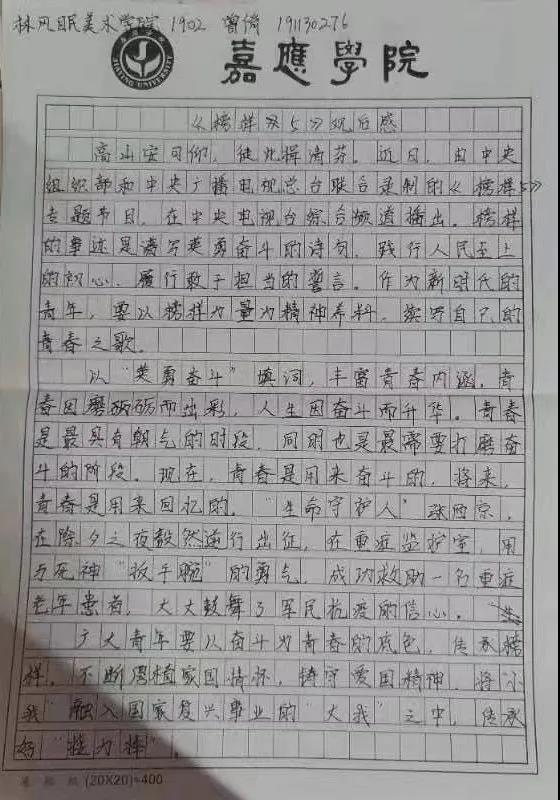 林风眠美术学院 1902 曾倚 191130276
JIAYING UNIVERSITY
嘉應學院
《榜样》5》观后感
高山安可仰,徒此揖清芬。近日,由中央
组织部和中央广播电视总台联合录制的《榜样5》
专题节目,在中央电视台综合频道播出。榜样
的事迹是谱写英勇奋斗的诗句,践行人民至上
的初心、履行敢于担当的誓言。作为新时代的
青年,要以榜样力量为精神养料,续写自己的
青春之歌。
以“英勇奋斗”填词,丰富青春内涵。青
春因磨砺而出彩,人生因奋斗而升华。青春
是最具有朝气的时段,同时也是最需要打磨奋
斗的阶段。现在,青春是用来奋斗的,将来,
青春是用来回忆的。“生命守护人”张西京,
在除夕之夜毅然逆行出征,在重症监护室,用
与死神“扳手腕”的勇气,成功救助一名重症
老年患者,大大鼓舞了军民抗疫的信心。
广大青年要以奋斗为青春的底色,传承榜
样,不断厚植家国情怀,铸守爱国精神,将“小
我”融入国家复兴事业的“大我”之中,传承
好“接力棒”。
(20X20)=400